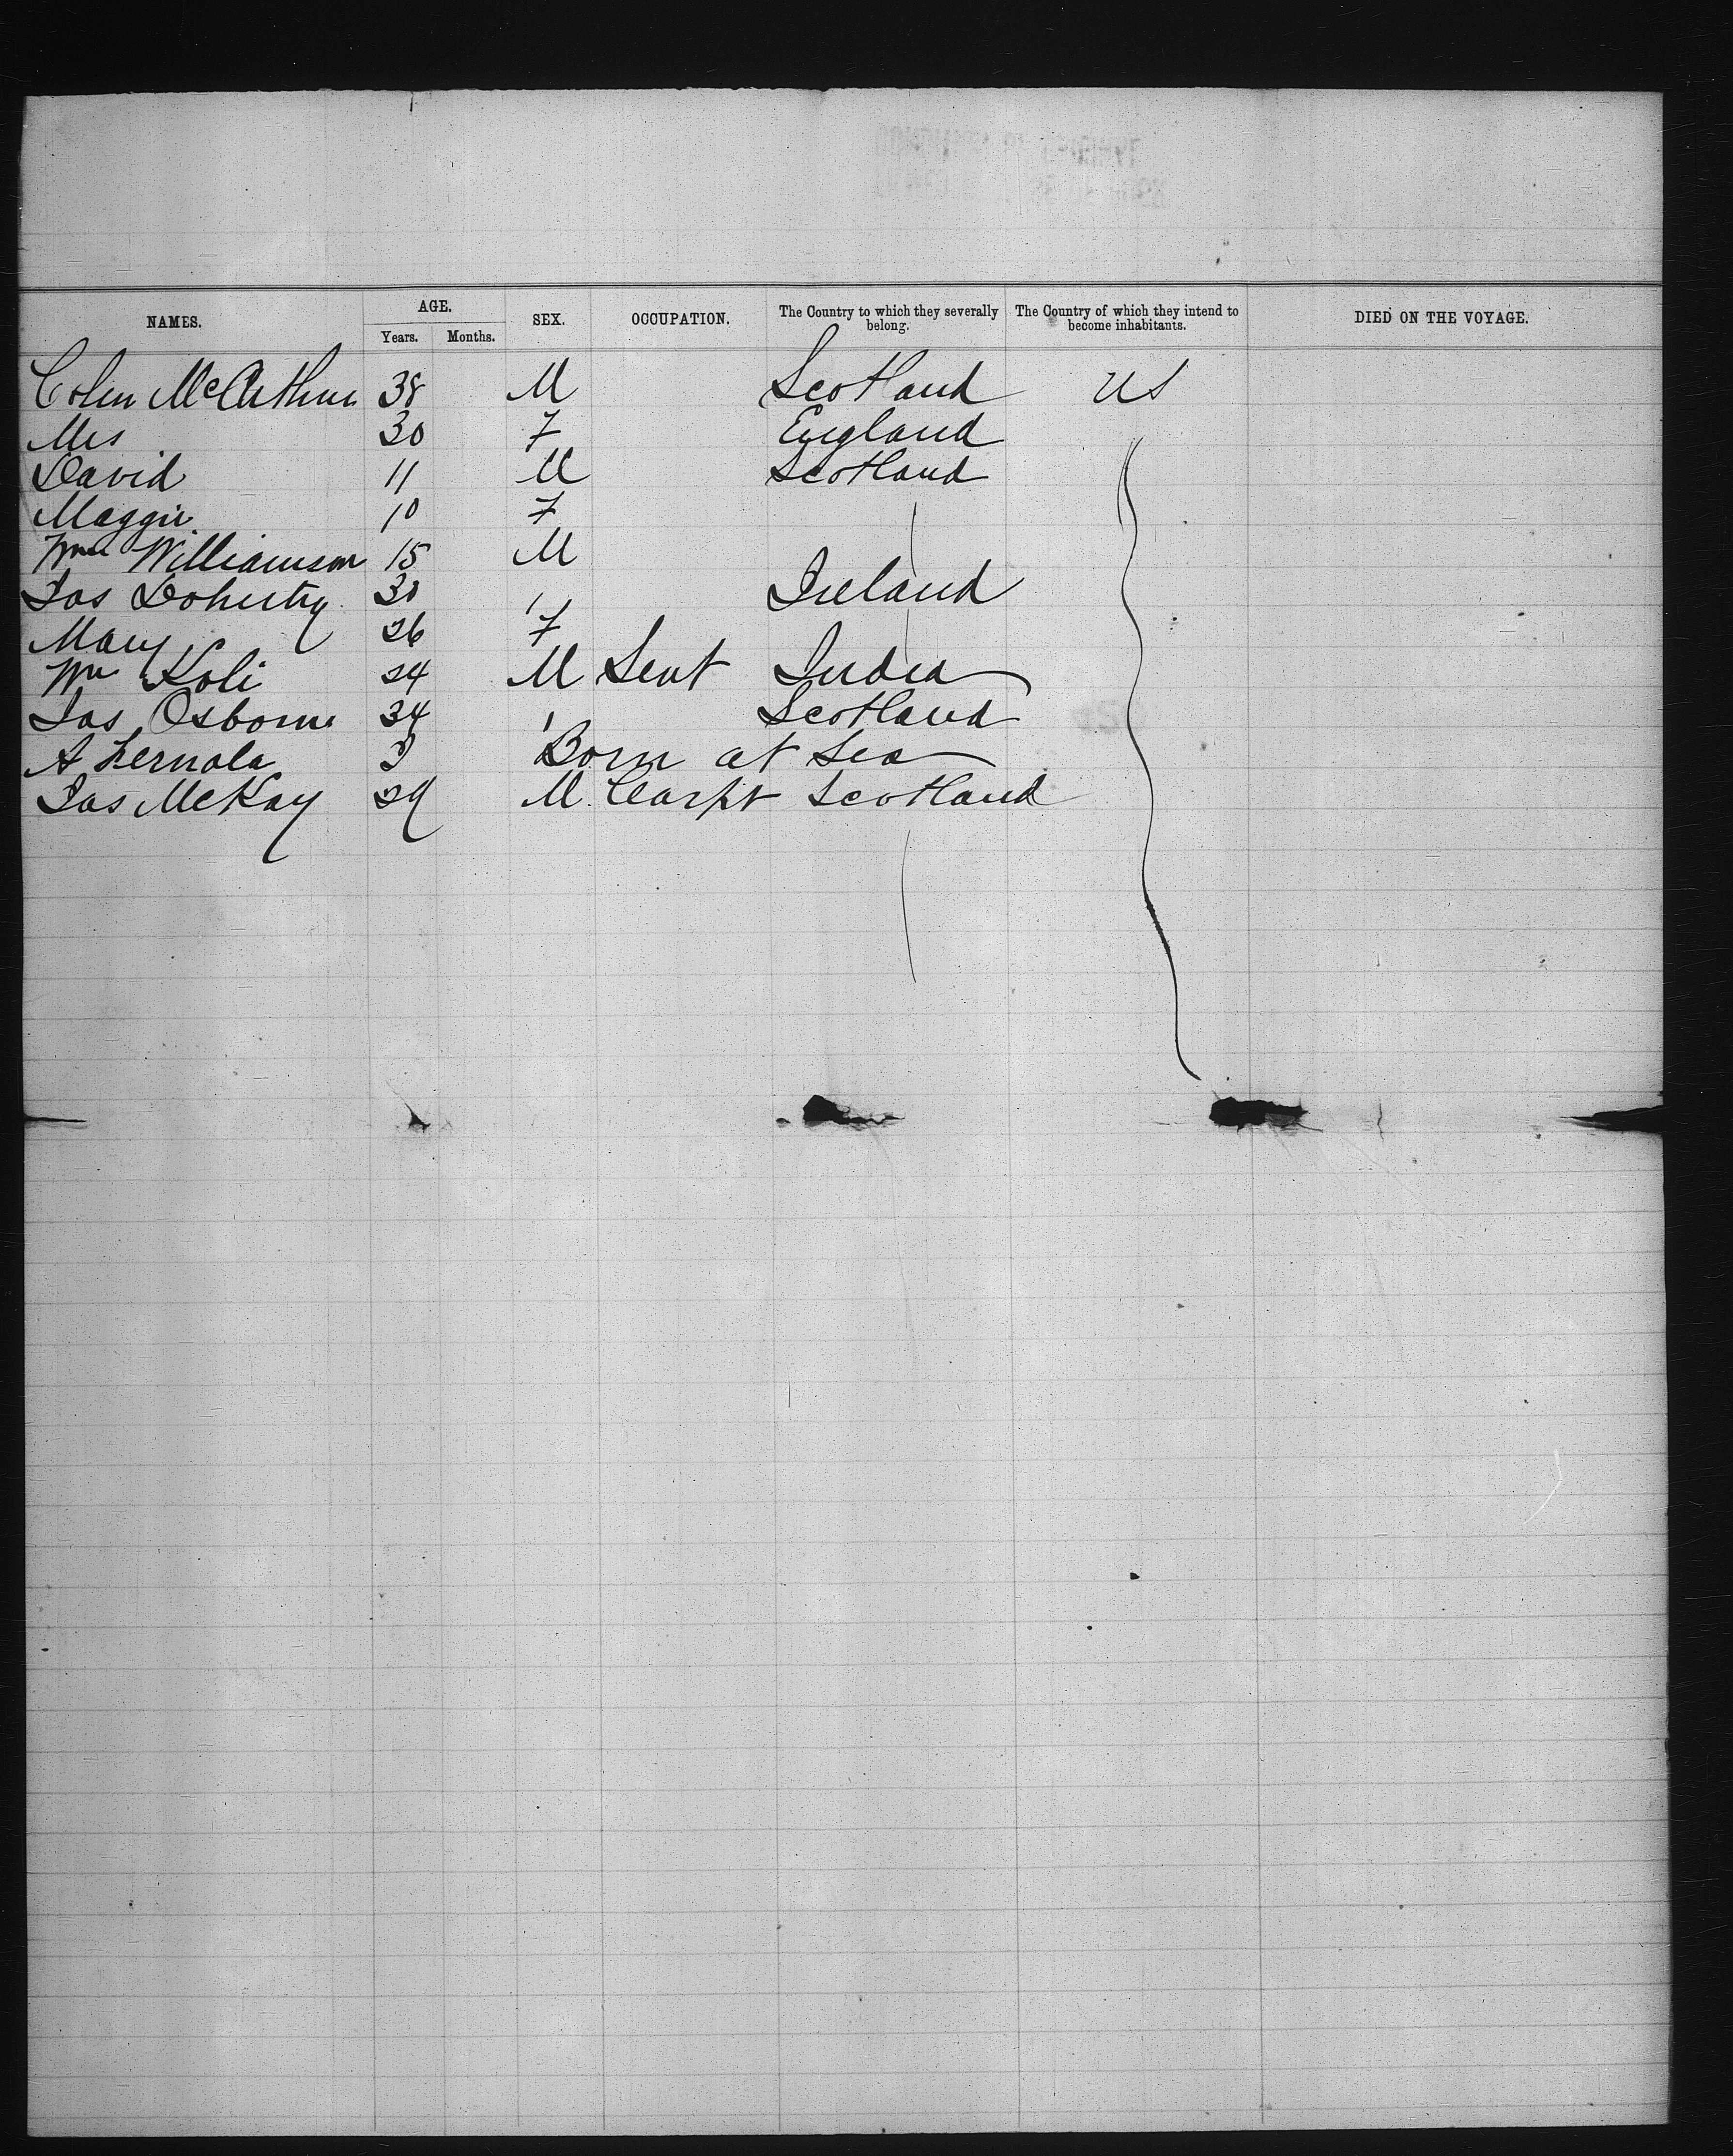 NAMES. AGE. SEX. OCCUPATION. The Country to which they severally belong. The Country of which they intend to become inhabitants. DIED ON THE VOYAGE.
Years. Months.
Colin McArthur 38 M Scotland US
Mrs 30 F England
David 11 M Scotland
Maggie 10 F
Wm Williamson 15 M
Jas Doherty 30 " Ireland
Mary 26 F
Wm Koli 24 M Gent India
Jas Osborne 34 " Scotland
A Born at Sea
Jas McKay 29 M Carpt Scotland